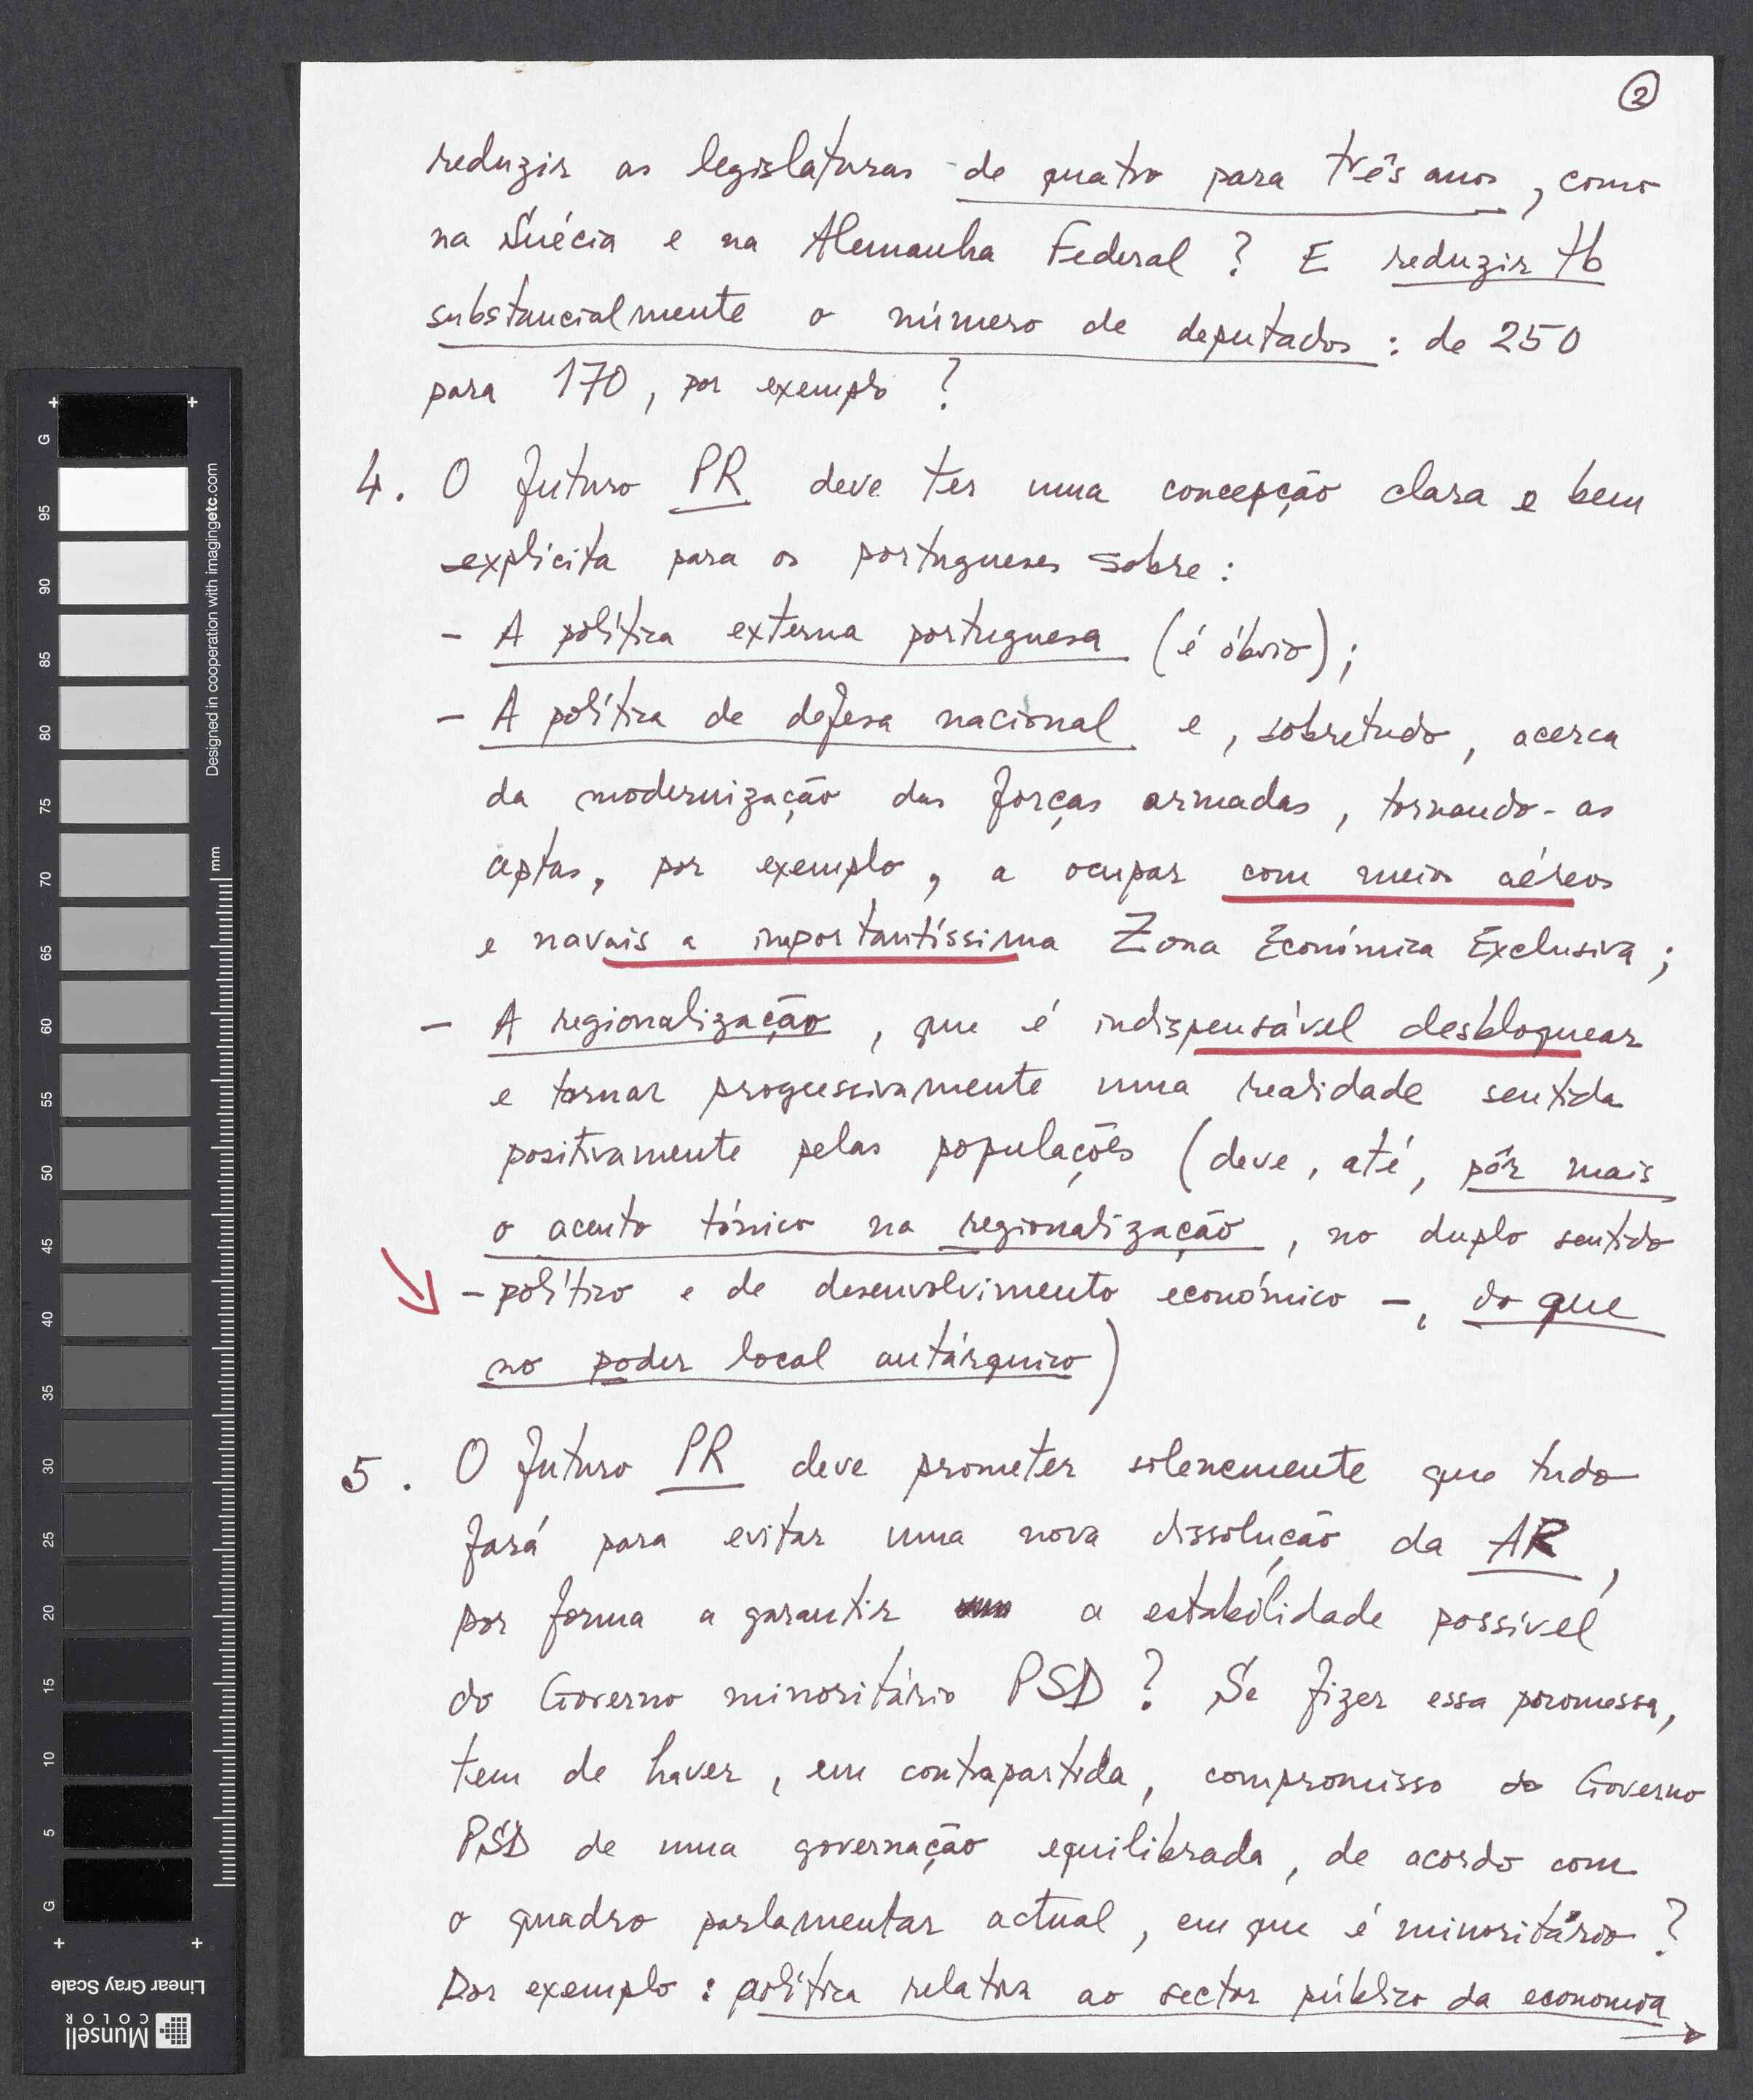 ②
reduzir as legislaturas de quatro para três anos, como
na Suécia e na Alemanha Federal ? E reduzir tb
substancialmente o número de deputados : de 250
para 170, por exemplo ?
4. O futuro PR deve ter uma concepção clara e bem
explícita para os portugueses sobre :
- A política externa portuguesa (é óbvio) ;
- A política de defesa nacional e, sobretudo, acerca
da modernização das forças armadas, tornando-as
aptas, por exemplo, a ocupar com meios aéreos
e navais a importantíssima Zona Económica Exclusiva ;
- A regionalização, que é indispensável desbloquear
e tornar progressivamente uma realidade sentida
positivamente pelas populações (deve, até, pôr mais
o acento tónico na regionalização, no duplo sentido
- político e de desenvolvimento económico -, do que
no poder local autárquico)
5. O futuro PR deve prometer solenemente que tudo
fará para evitar uma nova dissolução da AR,
por forma a garantir a estabilidade possível
do Governo minoritário PSD ? Se fizer essa promessa,
tem de haver, em contrapartida, compromisso do Governo
PSD de uma governação equilibrada, de acordo com
o quadro parlamentar actual, em que é minoritário ?
Por exemplo : política relativa ao sector público da economia
G 95 90 85 80 75 70 65 60 55 50 45 40 35 30 25 20 15 10 5 G
Designed in cooperation with imagingetc.com
mm
Linear Gray Scale
Munsell
COLOR